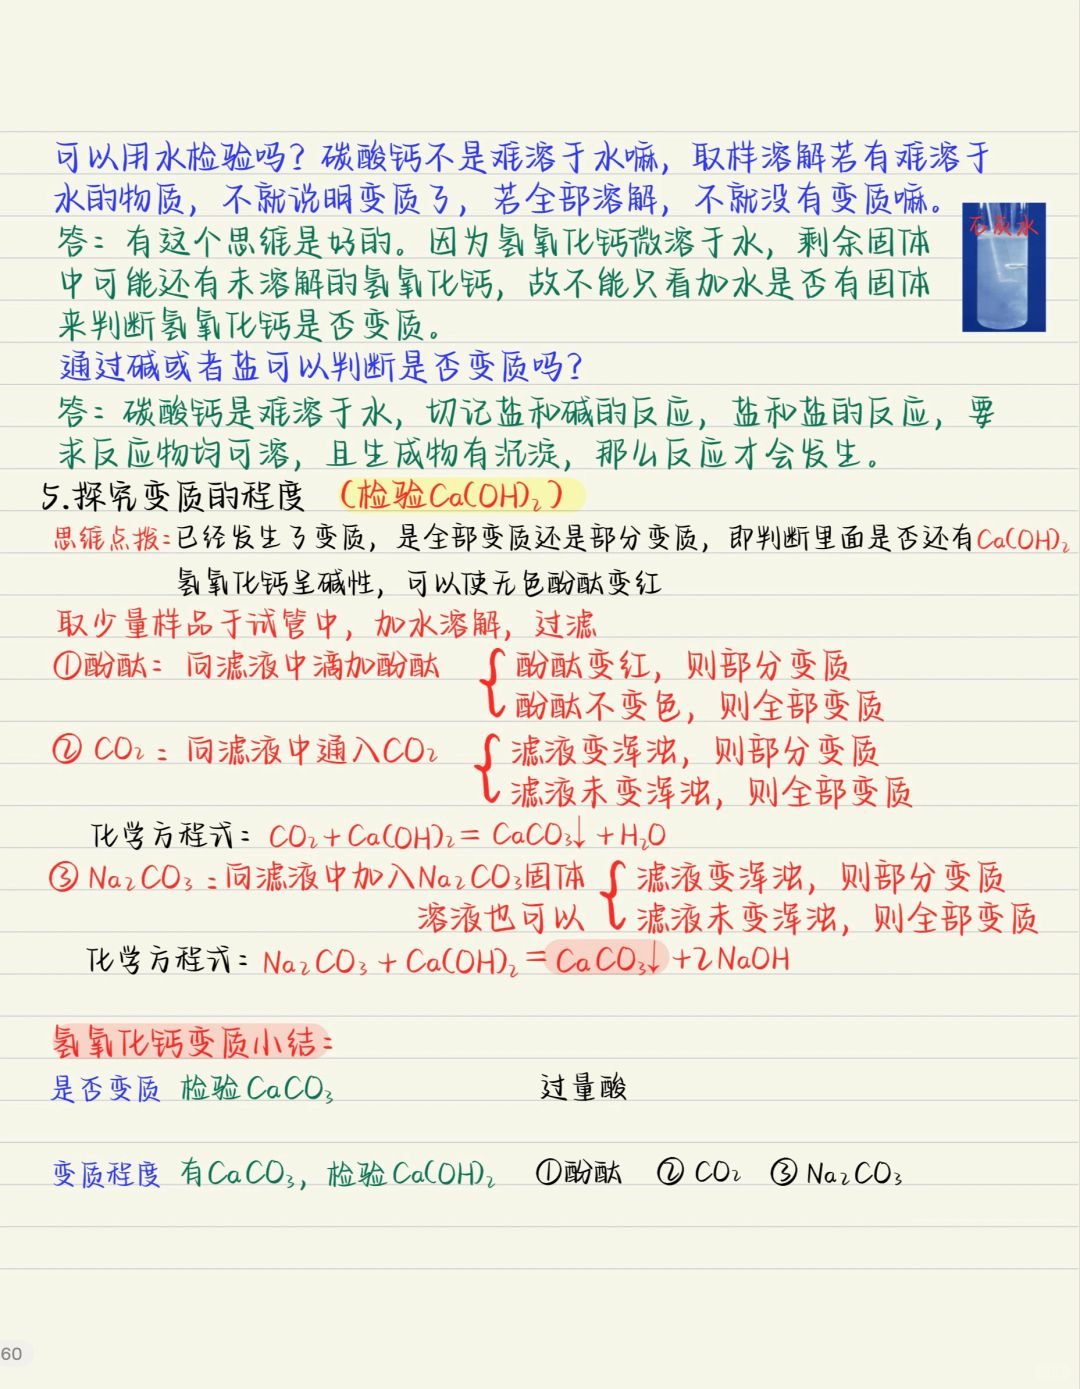 可以用水检验吗？碳酸钙不是难溶于水嘛，取样溶解若有难溶于
水的物质，不就说明变质了，若全部溶解，不就没有变质嘛。
石灰水
答：有这个思维是好的。因为氢氧化钙微溶于水，剩余固体
中可能还有未溶解的氢氧化钙，故不能只看加水是否有固体
来判断氢氧化钙是否变质。
通过碱或者盐可以判断是否变质吗？
答：碳酸钙是难溶于水，切记盐和碱的反应，盐和盐的反应，要
求反应物均可溶，且生成物有沉淀，那么反应才会发生。
5.探究变质的程度 （检验Ca(OH)₂）
思维点拨：已经发生了变质，是全部变质还是部分变质，即判断里面是否还有Ca(OH)₂
氢氧化钙呈碱性，可以使无色酚酞变红
取少量样品于试管中，加水溶解，过滤
①酚酞：向滤液中滴加酚酞 { 酚酞变红，则部分变质
酚酞不变色，则全部变质
② CO₂：向滤液中通入CO₂ { 滤液变浑浊，则部分变质
滤液未变浑浊，则全部变质
化学方程式：CO₂+Ca(OH)₂= CaCO₃↓+H₂O
③ Na₂CO₃：向滤液中加入Na₂CO₃固体 { 滤液变浑浊，则部分变质
溶液也可以 滤液未变浑浊，则全部变质
化学方程式：Na₂CO₃+Ca(OH)₂=CaCO₃↓+2NaOH
氢氧化钙变质小结：
是否变质 检验CaCO₃ 过量酸
变质程度 有CaCO₃，检验Ca(OH)₂ ①酚酞 ② CO₂ ③ Na₂CO₃
60